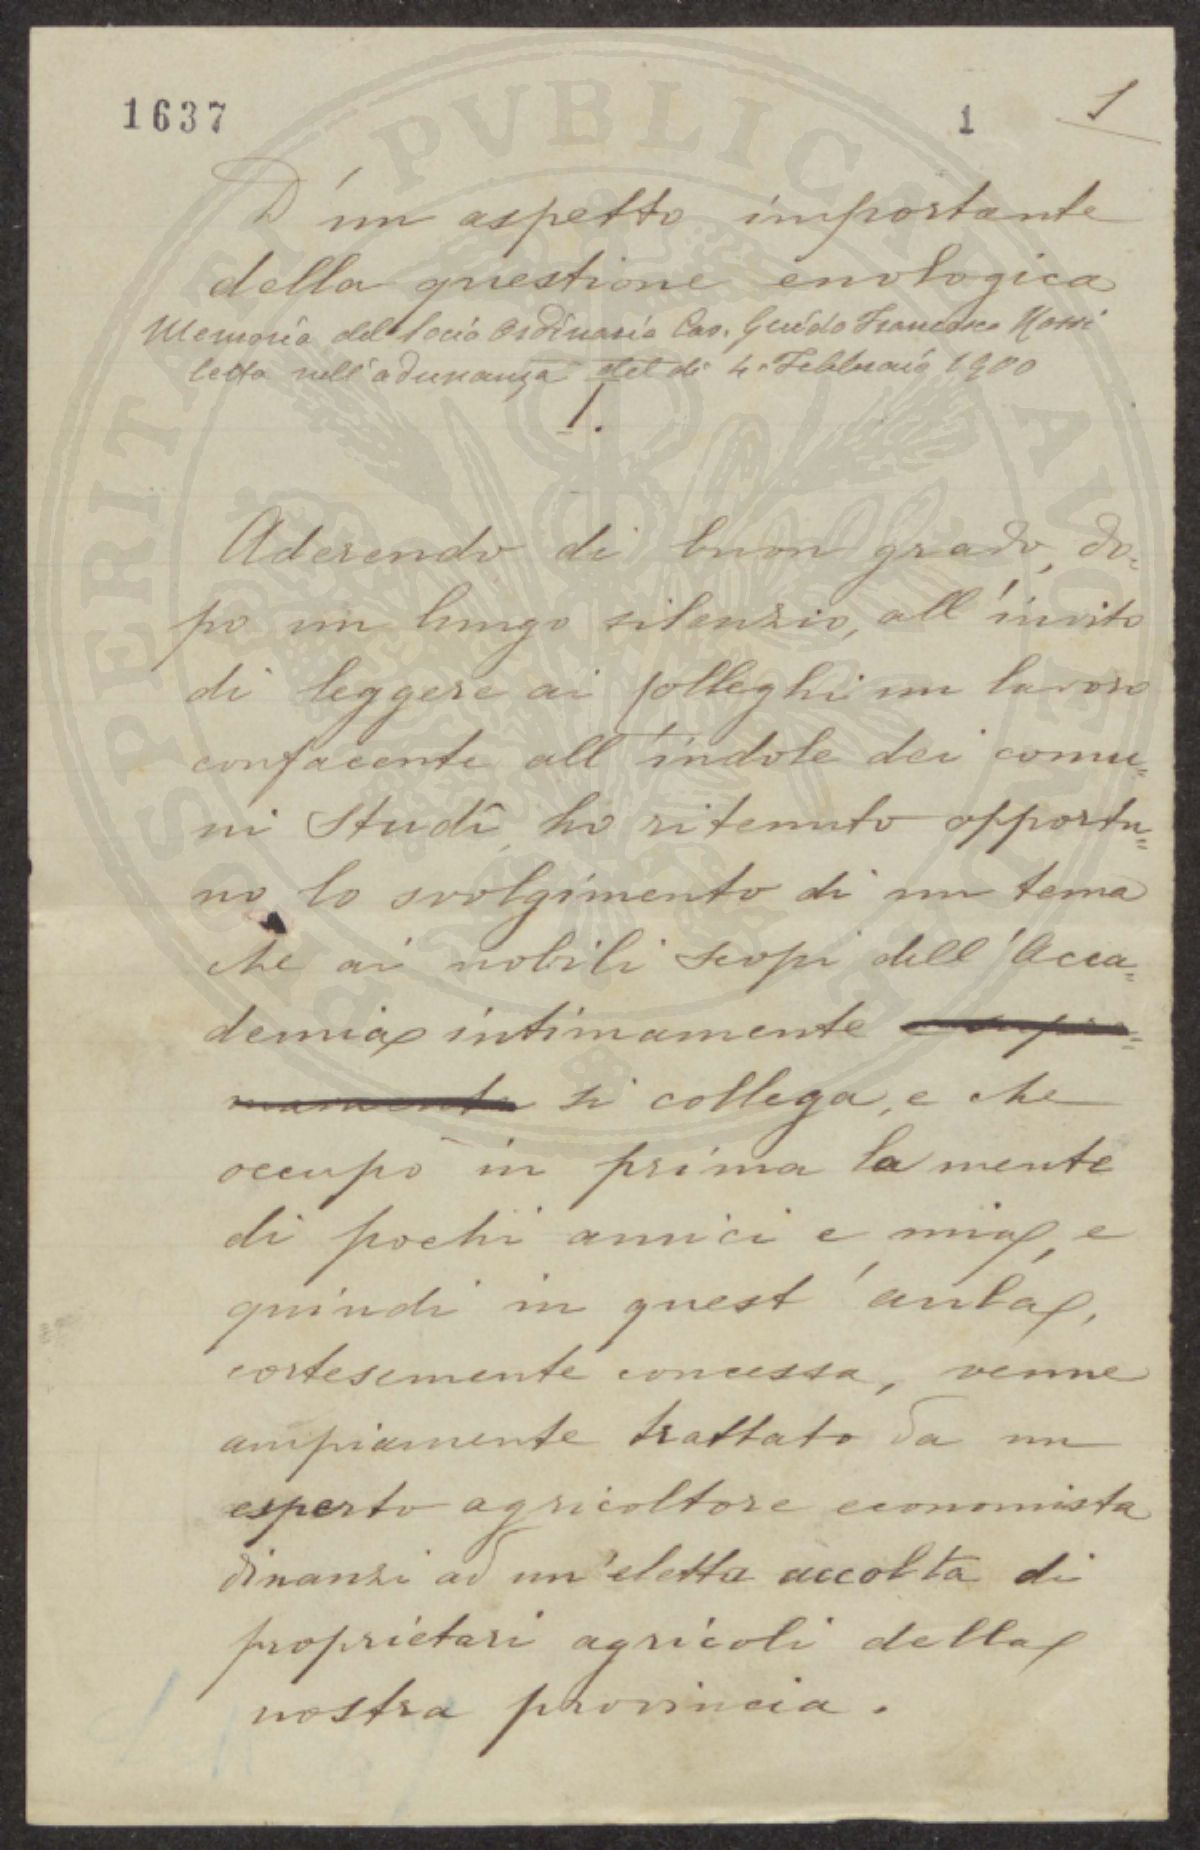 1637 1 1
D'un aspetto importante
della questione enologica
Memoria del Socio Ordinario Cav. Guido Francesco Rossi
letta nell'adunanza del dì 4. Febbraio 1900
I.
Aderendo di buon grado, do=
po un lungo silenzio, all'invito
di leggere ai Colleghi un lavoro
confacente all'indole dei comu=
ni Studî, ho ritenuto opportu=
no lo svolgimento di un tema
che ai nobili scopi dell'Acca=
demia intimamente
si collega, e che
occupò in prima la mente
di pochi amici e mia, e
quindi in quest'aula,
cortesemente concessa, venne
ampiamente trattato da un
esperto agricoltore economista
dinanzi ad un'eletta accolta di
proprietari agricoli della
nostra provincia.
PROSPERITATI PUBLICAE AUGENDAE